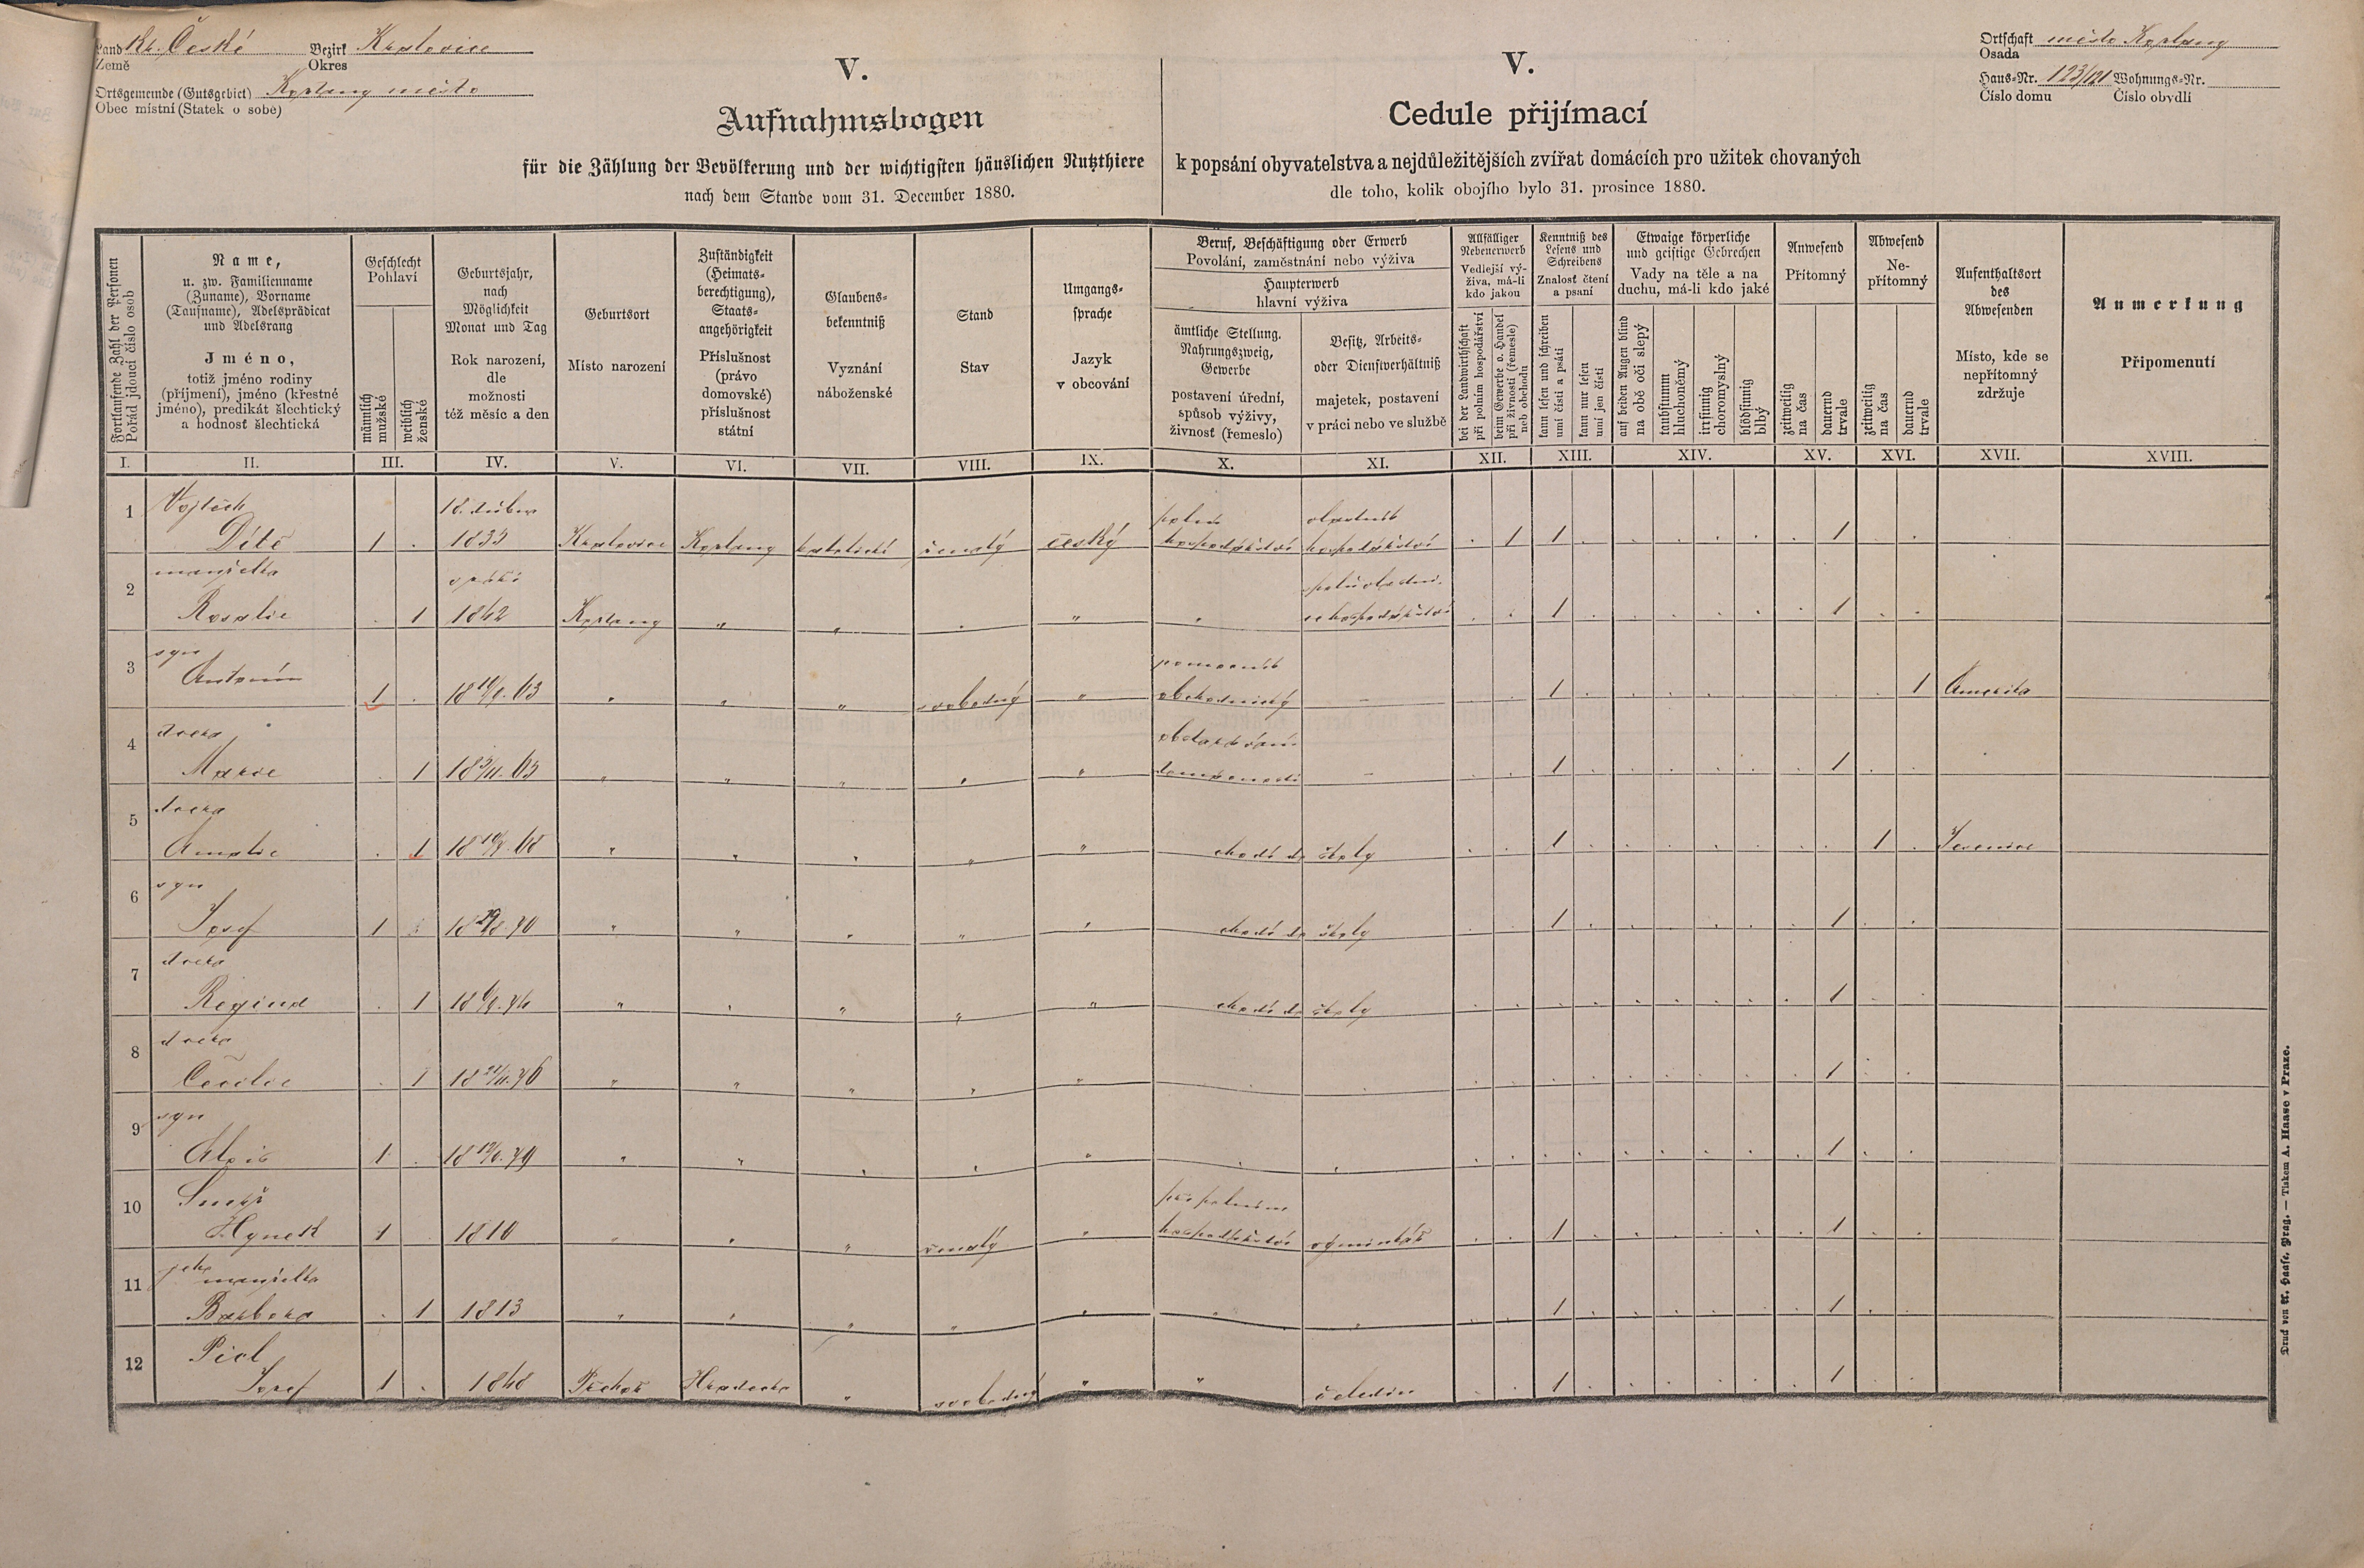 Land Kr. České Bezirk Kralovice
Země Okres
Ortsgemeinde (Gutsgebiet) Kožlany město
Obec místní (Statek o sobě)
V.
Aufnahmsbogen
für die Zählung der Bevölkerung und der wichtigsten häuslichen Nutzthiere
nach dem Stande vom 31. December 1880.
V.
Cedule přijímací
k popsání obyvatelstva a nejdůležitějších zvířat domácích pro užitek chovaných
dle toho, kolik obojího bylo 31. prosince 1880.
Ortschaft město Kožlany
Osada
Haus-Nr. 123/121 Wohnungs-Nr.
Číslo domu Číslo obydlí
Fortlaufende Zahl der Personen
Pořád jdoucí číslo osob
Name,
u. zw. Familienname
(Zuname), Vorname
(Taufname), Adelsprädicat
und Adelsrang
Jméno,
totiž jméno rodiny
(příjmení), jméno (křestné
jméno), predikát šlechtický
a hodnosť šlechtická
Geschlecht
Pohlaví
männlich
mužské
weiblich
ženské
Geburtsjahr,
nach
Möglichkeit
Monat und Tag
Rok narození,
dle
možnosti
též měsíc a den
Geburtsort
Místo narození
Zuständigkeit
(Heimats-
berechtigung),
Staats-
angehörigkeit
Příslušnost
(právo
domovské)
příslušnost
státní
Glaubens-
bekenntniß
Vyznání
náboženské
Stand
Stav
Umgangs-
sprache
Jazyk
v obcování
Beruf, Beschäftigung oder Erwerb
Povolání, zaměstnání nebo výživa
Haupterwerb
hlavní výživa
ämtliche Stellung.
Nahrungszweig,
Gewerbe
postavení úřední,
spůsob výživy,
živnosť (řemeslo)
Besitz, Arbeits-
oder Dienstverhältniß
majetek, postavení
v práci nebo ve službě
Allfälliger
Nebenerwerb
Vedlejší vý-
živa, má-li
kdo jakou
bei der Landwirthschaft
při polním hospodářství
beim Gewerbe o. Handel
při živnosti (řemesle)
neb obchodu
Kenntniß des
Lesens und
Schreibens
Znalosť čtení
a psaní
kann lesen und schreiben
umí čísti a psáti
kann nur lesen
umí jen čísti
Etwaige körperliche
und geistige Gebrechen
Vady na těle a na
duchu, má-li kdo jaké
auf beiden Augen blind
na obě oči slepý
taubstumm
hluchoněmý
irrsinnig
choromyslný
blödsinnig
blbý
Anwesend
Přítomný
zeitweilig
na čas
dauernd
trvale
Abwesend
Ne-
přítomný
zeitweilig
na čas
dauernd
trvale
Aufenthaltsort
des
Abwesenden
Místo, kde se
nepřítomný
zdržuje
Anmerkung
Připomenutí
I. II. III. IV. V. VI. VII. VIII. IX. X. XI. XII. XIII. XIV. XV. XVI. XVII. XVIII.
1 Vojtěch 18. dubna polní vlastník
Dítě 1 . 1833 Kralovice Kožlany katolické ženatý český hospodářství hospodářství . 1 1 . . . . . . 1 . .
2 manželka v září
Rosalie . 1 1842 Kožlany " " . " " . . 1 . . . . . . 1 . .
3 syn pomocník
Antonín 1 . " " " svobodný " obchodnický – . . 1 . . . . . . . . 1 Amerika
4 dcera
Marie . 1 " " " " " domácnosti – . . 1 . . . . . . 1 . .
5 dcera
Amalie . 1 " " " " " chodí do školy . . 1 . . . . . . . 1 .
6 syn
Josef 1 . 18 29/8. 70 " " " " " chodí do školy . . 1 . . . . . . 1 . .
7 dcera
Regina . 1 " " " " " chodí do školy . . . . . . . . . 1 . .
8 dcera
Cecilie . 1 18 21/11. 76 " " " " " . . . . . . . . . . . 1 . .
9 syn
Alois 1 . " " " " " . . . . . . . . . . . 1 . .
10 při polním
Hynek 1 . 1810 " " " ženatý " hospodářství výminkář . . 1 . . . . . . 1 . .
11 jeho manželka
Barbora . 1 1813 " " " " " " " . . 1 . . . . . . 1 . .
12 Picl
Josef 1 . 1848 Hradecko " svobodný " " čeledín . . 1 . . . . . . 1 . .
Druck von A. Haase, Prag. — Tiskem A. Haase v Praze.